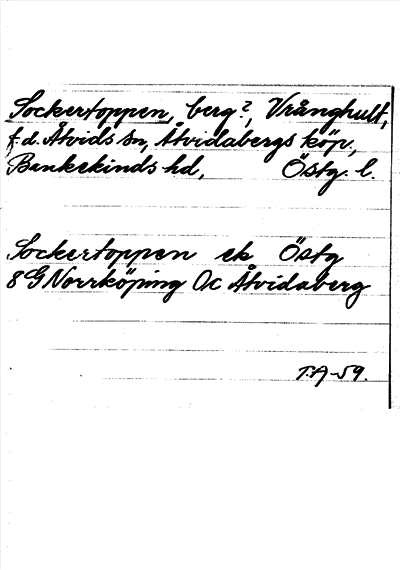 Sockertoppen, berg?, Vrånghult,
f.d. Åtvids sn, Åtvidabergs köp.,
Bankekinds hd, Östg. l.
Sockertoppen ek Östg
8G Norrköping Oc Åtvidaberg
T.A-59.